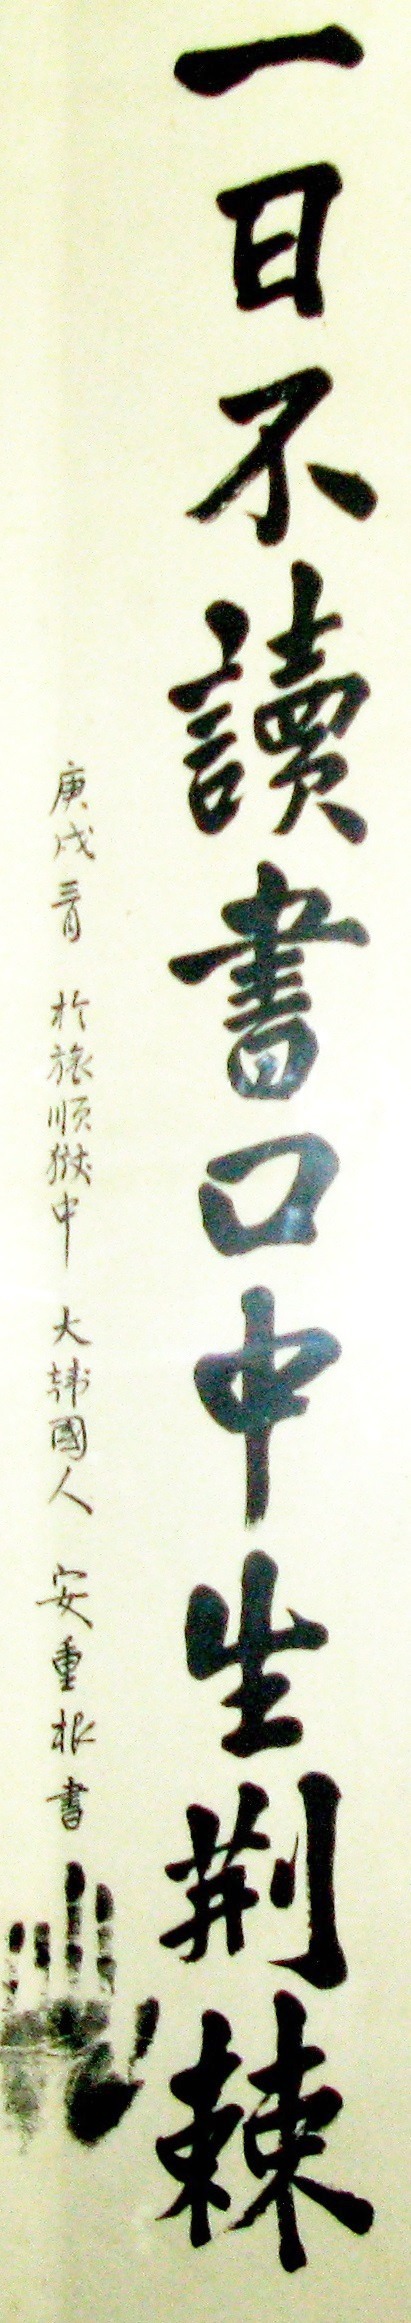 一日不讀書口中生荊棘
庚戌三月 於旅順獄中 大韓國人 安重根書